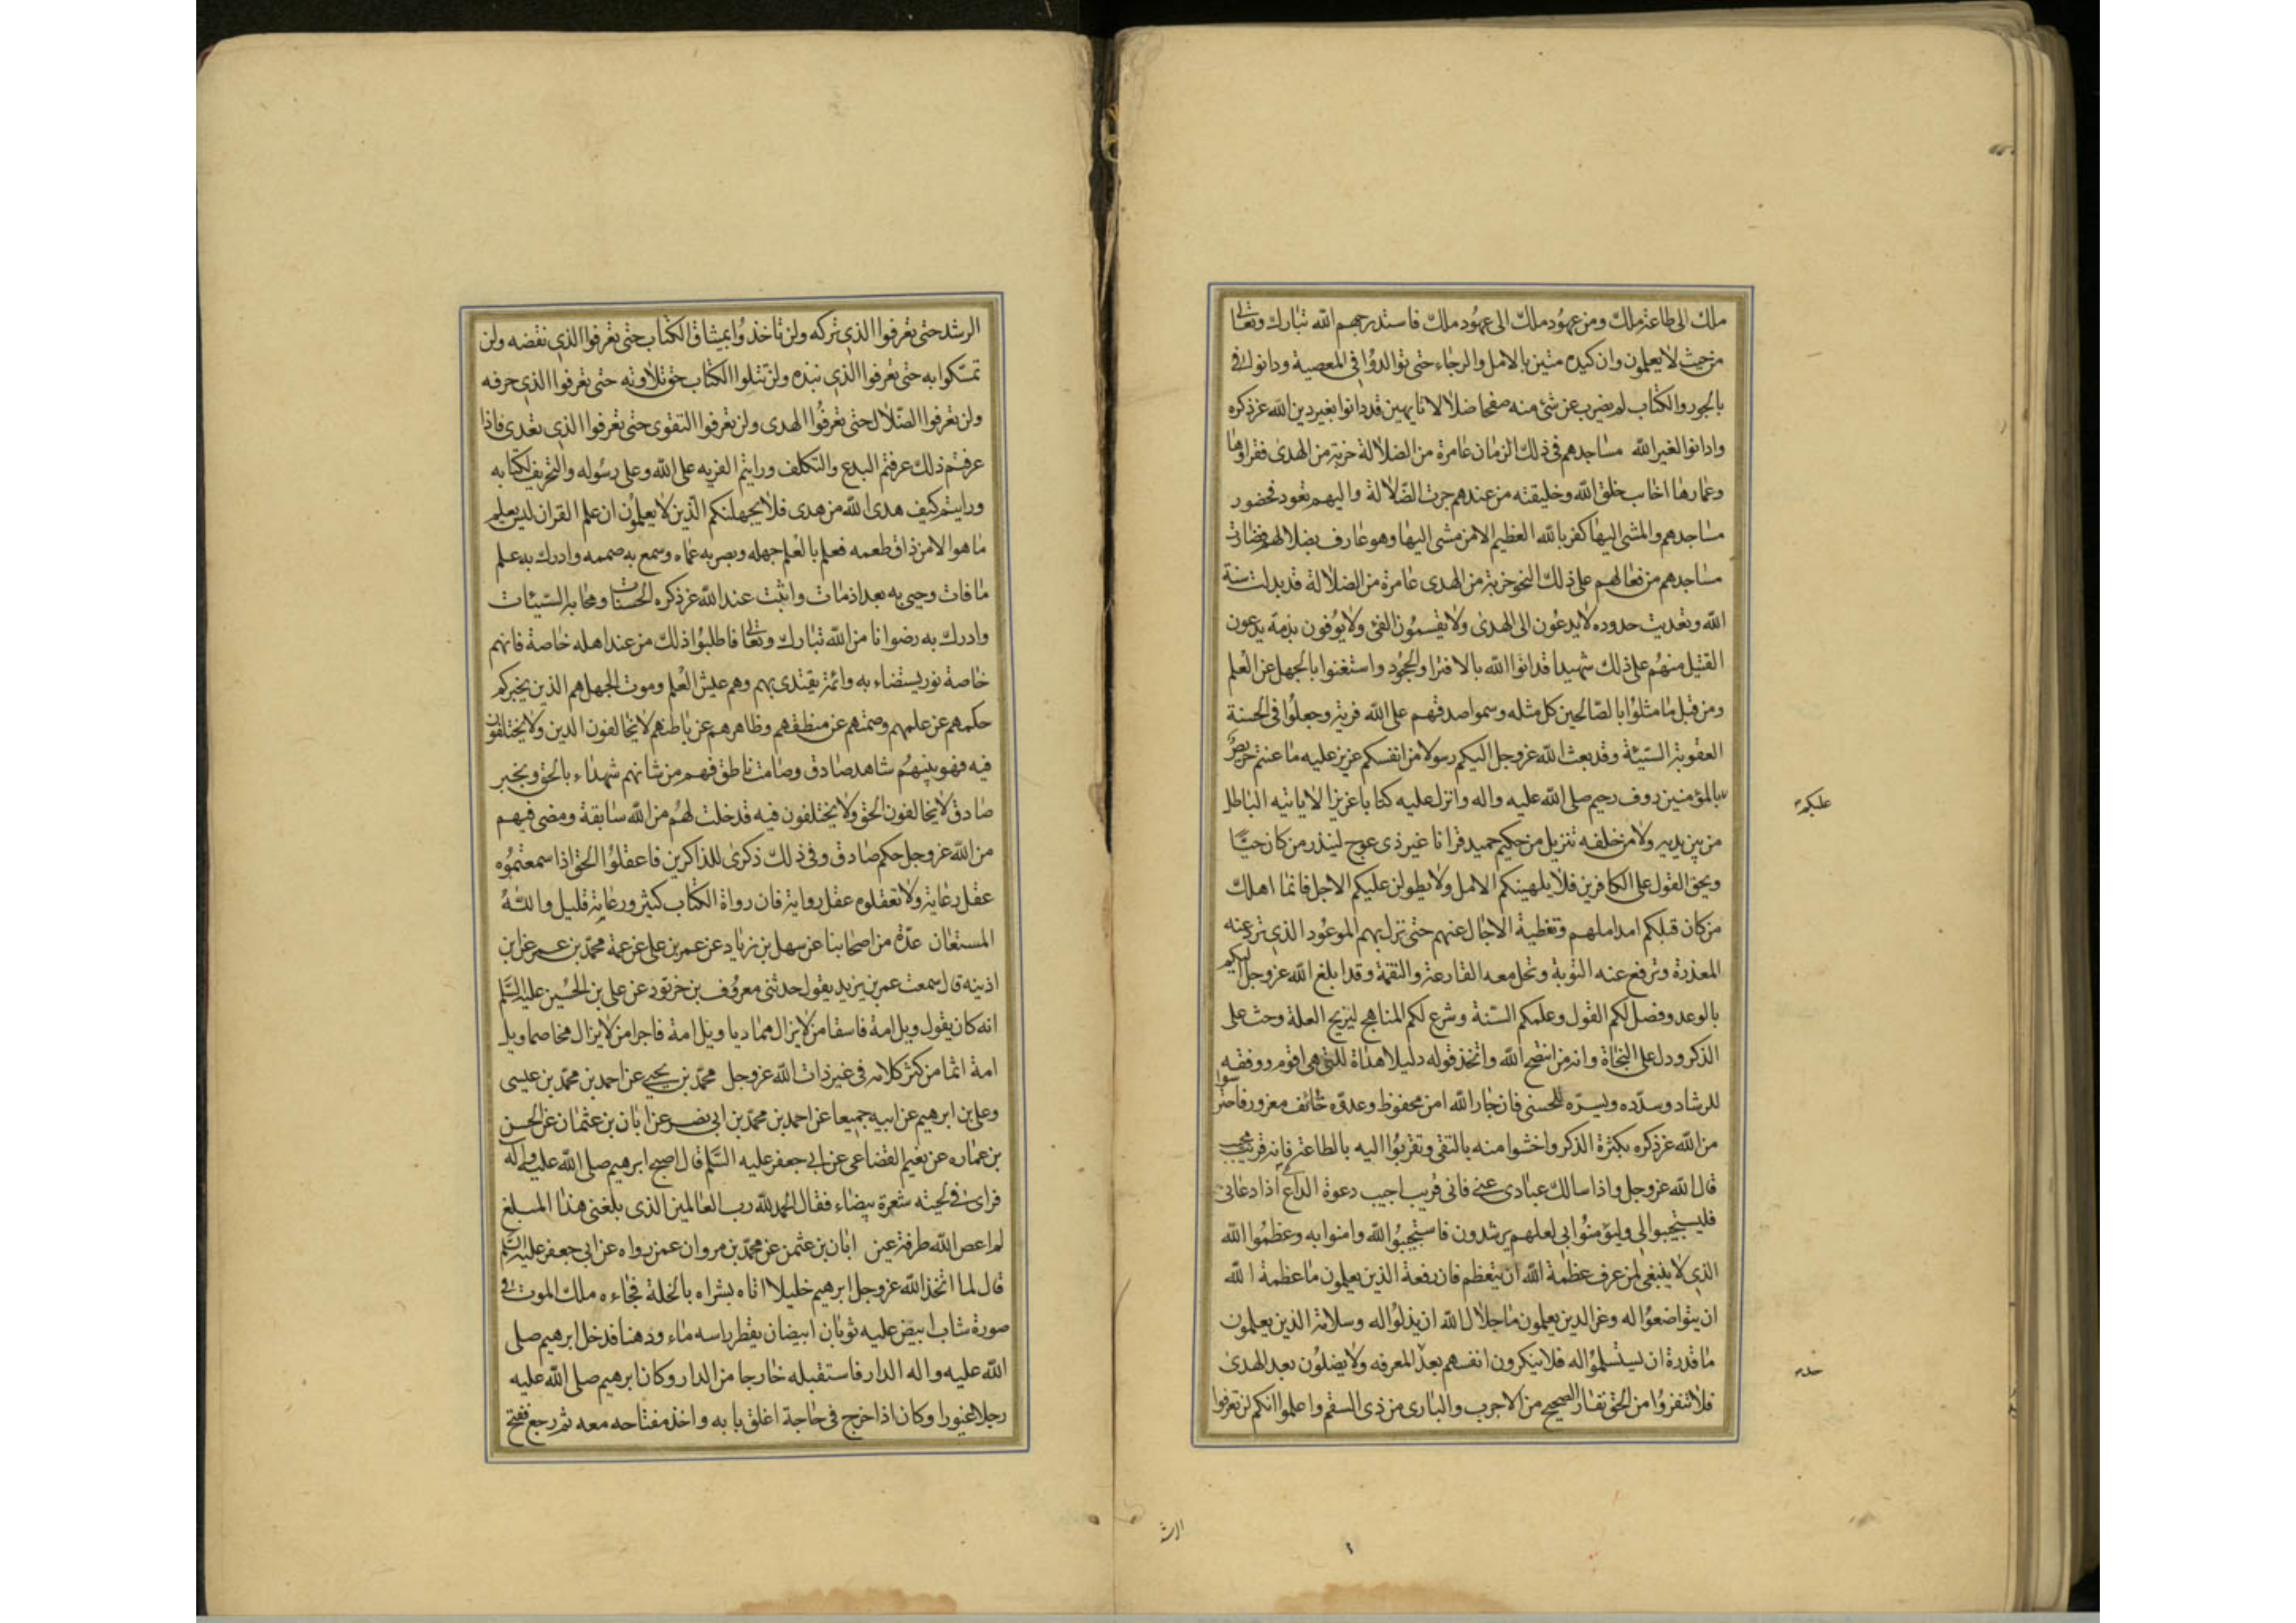 ملك الى طاعة ملك ومن عهود ملك الى عهود ملك فاستدرجهم الله تبارك وتعالى
من حيث لا يعلمون وان كيده متين بالامل والرجاء حتى توالدوا في المعصية ودانوا
بالجور والكتاب لم يضرب عن شئ منه صفحا ضلالا تايهين قد دانوا بغير دين الله عز ذكره
وادانوا لغير الله مساجدهم في ذلك الزمان عامرة من الضلالة خربة من الهدى فقراؤها
وعمارها اخاب خلق الله وخليقته من عندهم جرت الضلالة واليهم تعود فحضور
مساجدهم والمشى اليها كفر بالله العظيم الا من مشى اليها وهو عارف بضلالهم فصارت
مساجدهم من فعالهم على ذلك النحو خربة من الهدى عامرة من الضلالة قد بدلت سنة
الله وتعديت حدوده لا يدعون الى الهدى ولا يقسمون الفئ ولا يوفون بذمة يدعون
القتيل منهم على ذلك شهيدا قد اتوا الله بالافترا والجحود واستغنوا بالجهل عن العلم
ومن قبل ما مثلوا بالصالحين كل مثله وسموا صدقهم على الله فرية وجعلوا في الحسنة
العقوبة السيئة وقد بعث الله عز وجل اليكم رسولا من انفسكم عزيز عليه ما عنتم حريص
بالمؤمنين روف رحيم صلى الله عليه واله وانزل عليه كتابا عزيزا لا ياتيه الباطل
عليكم
من بين يديه ولا من خلفه تنزيل من حكيم حميد قرانا غير ذى عوج لينذر من كان حيا
ويحق القول على الكافرين فلا يلهينكم الامل ولا يطولن عليكم الاجل فانما اهلك
من كان قبلكم امد املهم وتغطية الاجال عنهم حتى نزل بهم الموعود الذي ترد عنه
المعذرة وترفع عنه التوبة وتحل معه القارعة والنقمة وقد ابلغ الله عز وجل اليكم
بالوعد وفصل لكم القول وعلمكم السنة وشرع لكم المناهج ليزيح العلة وحث على
الذكر ودل على النجاة وانه من انتصح الله واتخذ قوله دليلا هداه للتي هي اقوم ووفقه
للرشاد وسدده ويسره للحسنى فان جار الله امن محفوظ وعدوه خائف مغرور فاحترسوا
من الله عز ذكره بكثرة الذكر واخشوا منه بالتقى وتقربوا اليه بالطاعة فانه قريب مجيب
قال الله عز وجل واذا سالك عبادى عني فانى قريب اجيب دعوة الداع اذا دعانى
فليستجيبوا لى وليؤمنوا بي لعلهم يرشدون فاستجيبوا لله وامنوا به وعظموا الله
الذي لا ينبغي لمن عرف عظمة الله ان يتعظم فان رفعة الذين يعلمون ما عظمة الله
ان يتواضعوا له وعز الذين يعلمون ما جلال الله ان يذلوا له وسلامة الذين يعلمون
ما قدرة ان يستسلموا له فلا ينكرون انفسهم بعد المعرفه ولا يضلون بعد الهدى
فلا تنفروا من الحق نفار الصحيح من الاجرب والبارى من ذى السقم واعلموا انكم لن تعرفوا
الرشد
الرشد حتى تعرفوا الذي تركه ولن تاخذوا بميثاق الكتاب حتى تعرفوا الذي نقضه ولن
تمسكوا به حتى تعرفوا الذي نبذه ولن تتلوا الكتاب حق تلاوته حتى تعرفوا الذي حرفه
ولن تعرفوا الضلال حتى تعرفوا الهدى ولن تعرفوا التقوى حتى تعرفوا الذي تعدى فاذا
عرفتم ذلك عرفتم البدع والتكلف ورايتم الفريه على الله وعلى رسوله والتحريف لكتابه
ورايتم كيف هدى الله من هدى فلا يجهلنكم الذين لا يعلمون ان علم القران ليس يعلم
ما هو الا من ذاق طعمه فعلم بالعلم جهله وبصر به عماه وسمع به صممه وادرك به علم
ما فات وحيي به بعد اذ مات واثبت عند الله عز ذكره الحسنات ومحا به السيئات
وادرك به رضوانا من الله تبارك وتعالى فاطلبوا ذلك من عند اهله خاصة فانهم
خاصة نور يستضاء به وائمة يقتدى بهم وهم عيش العلم وموت الجهل هم الذين يخبركم
حكمهم عن علمهم وصمتهم عن منطقهم وظاهرهم عن باطنهم لا يخالفون الدين ولا يختلفون
فيه فهو بينهم شاهد صادق وصامت ناطق فهم من شانهم شهداء بالحق ويخبر
صادق لا يخالفون الحق ولا يختلفون فيه قد خلت لهم من الله سابقة ومضى فيهم
من الله عز وجل حكم صادق وفي ذلك ذكرى للذاكرين فاعقلوا الحق اذا سمعتموه
عقل رعاية ولا تعقلوه عقل رواية فان رواة الكتاب كثير ورعاية قليل والله
المستعان عدة من اصحابنا عن سهل بن زياد عن عمر بن على عن عمه محمد بن عمر عن ابن
اذينه قال سمعت عمر بن يزيد يقول حدثنى معروف بن خربوذ عن على بن الحسين عليه السلم
انه كان يقول ويل امة فاسقا من لا يزال مماديا ويل امة فاجرا من لا يزال مخاصما ويل
امة اثما من كثر كلامه في غير ذات الله عز وجل محمد بن يحيى عن احمد بن محمد بن عيسى
وعلى بن ابرهيم عن ابيه جميعا عن احمد بن محمد بن ابى نصر عن ابان بن عثمان عن الحسن
بن عماره عن نعيم القضاعى عن ابي جعفر عليه السلم قال اصبح ابرهيم صلى الله عليه واله
فراى في لحيته شعرة بيضاء فقال الحمد لله رب العالمين الذى بلغنى هذا المبلغ
لم اعص الله طرفة عين ابان بن عثمن عن محمد بن مروان عمن رواه عن ابي جعفر عليه السلم
قال لما اتخذ الله عز وجل ابرهيم خليلا اتاه بشراه بالخلة فجاءه ملك الموت في
صورة شاب ابيض عليه ثوبان ابيضان يقطر راسه ماء ودهنا فدخل ابرهيم صلى
الله عليه واله الدار فاستقبله خارجا من الدار وكان ابرهيم صلى الله عليه
رجلا غيورا وكان اذا خرج في حاجة اغلق بابه واخذ مفتاحه معه ثم رجع ففتح